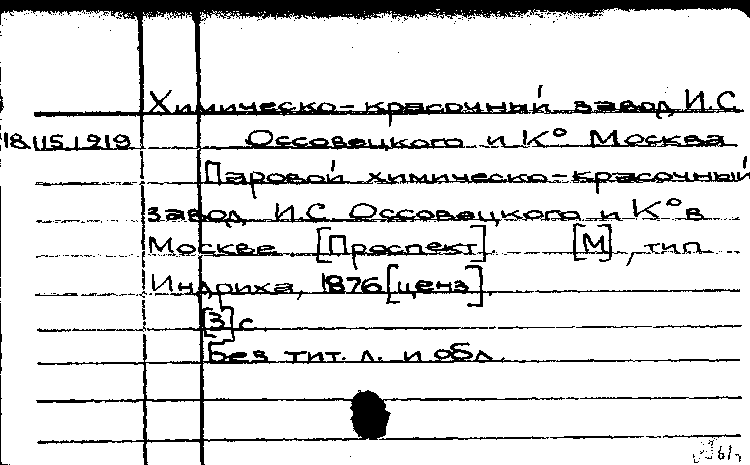 Химическо-красочный завод И.С.
18.115.1.919 Оссовецкого и К° Москва
Паровой химическо-красочный
завод И.С. Оссовецкого и К° в
Москве [Проспект]. [М], тип
Индриха, 1876 [ценз].
[3] с
Без тит. л. и обл.